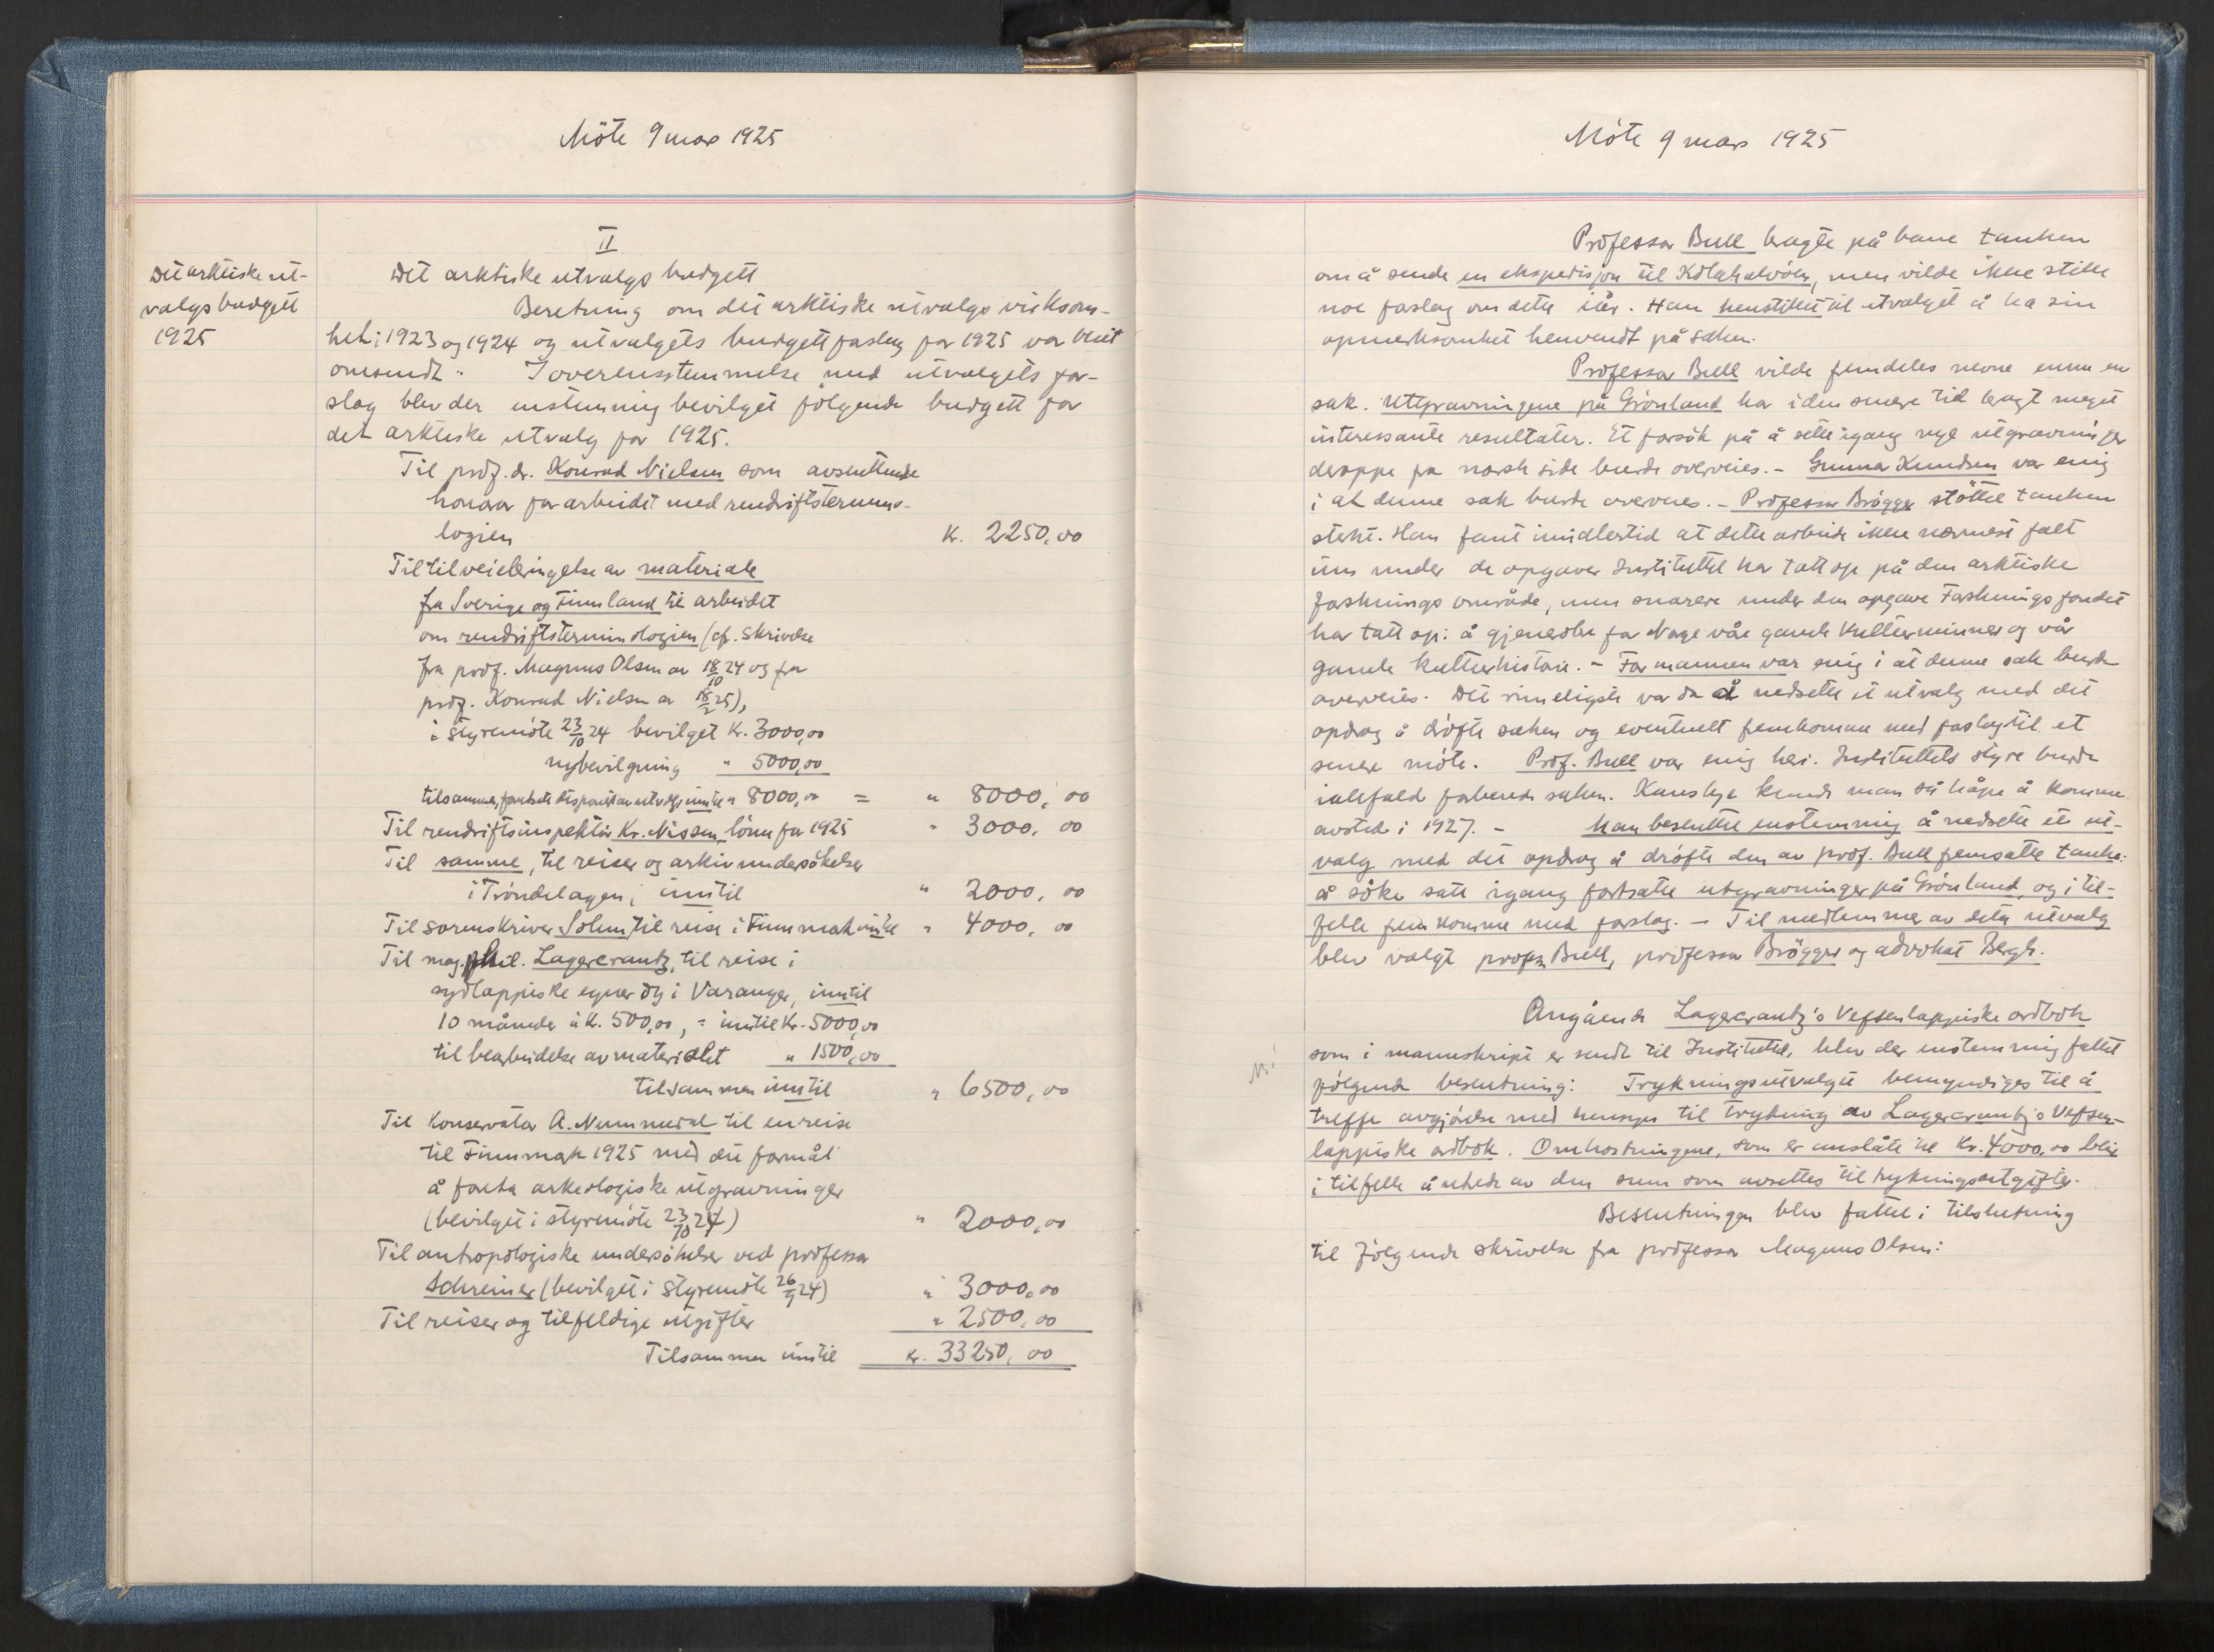 Möte 9 mars 1925
Det arktiske ut-
valgs budgett
1925
II
Det arktiske utvalgs budgett
Beretning om det arktiske utvalgs virksom-
het i 1923 og 1924 og utvalgets budgettforslag for 1925 var blitt
omsendt. I overensstemmelse med utvalgets for-
slag blev der enstemmig bevilget følgende budgett for
det arktiske utvalg for 1925.
Til prof. dr. Konrad Nielsen som avsluttende
honorar for arbeidet med rendriftstermino-
logien kr. 2250,00
Til tilveiebringelse av materiale
fra Sverige og Finnland til arbeidet
om rendriftsterminologien (cfr. skrivelse
fra prof. Magnus Olsen av 18/10 24 og fra
prof. Konrad Nielsen av 18/2 25),
i styremöte 23/10 24 bevilget kr. 3000,00
nybevilgning " 5000,00
tilsammen, forutsatt disponert av utvalget inntil " 8000,00 = " 8000,00
Til rendriftsinspektör Kr. Nissen, lönn for 1925 " 3000,00
Til samme, til reiser og arkivundersökelser
i Tröndelagen, inntil " 2000,00
Til sorenskriver Solem, til reise i Finnmark inntil " 4000,00
Til mag. phil. Lagercrantz, til reise i
sydlappiske egner og i Varanger, inntil
10 måneder à kr. 500,00, = inntil kr. 5000,00
til bearbeidelse av materialet " 1500,00
tilsammen inntil " 6500,00
Til konservator A. Nummedal til en reise
til Finnmark 1925 med det formål
å foreta arkeologiske utgravninger
(bevilget i styremöte 23/10 24) " 2000,00
Til antropologiske undersökelser ved professor
Schreiner (bevilget i styremöte 26/9 24) " 3000,00
Til reiser og tilfeldige utgifter " 2500,00
Tilsammen inntil kr. 33250,00
Möte 9 mars 1925
Professor Bull bragte på bane tanken
om å sende en ekspedisjon til Kolahalvöen, men vilde ikke stille
noe forslag om dette iår. Han henstillet til utvalget å ha sin
opmerksomhet henvendt på saken.
Professor Bull vilde fremdeles nevne ennu en
sak. Utgravningene på Grönland har i den senere tid bragt meget
interessante resultater. Et forsök på å sette igang nye utgravninger
deroppe fra norsk side burde overveies. - Gunnar Knudsen var enig
i at denne sak burde overveies. - Professor Brögger stöttet tanken
sterkt. Han fant imidlertid at dette arbeide ikke nærmest falt
inn under de opgaver Instituttet har tatt op på den arktiske
forsknings område, men snarere under den opgave Forskningsfondet
har tatt op: å gjenreise for Norge våre gamle kulturminner og vår
gamle kulturhistorie. - Formannen var enig i at denne sak burde
overveies. Det rimeligste var da å nedsette et utvalg med det
opdrag å dröfte saken og eventuelt fremkomme med forslag til et
senere möte. Prof. Bull var enig heri. Instituttets styre burde
iallefald forberede saken. Kanskje kunde man så håpe å komme
avsted i 1927. - Man besluttet enstemmig å nedsette et ut-
valg med det opdrag å dröfte den av prof. Bull fremsatte tanke:
å söke satt igang fortsatte utgravninger på Grönland, og i til-
felle fremkomme med forslag. - Til medlemmer av dette utvalg
blev valgt professor Bull, professor Brögger og advokat Bergh.
Angående Lagercrantz's Vefsenlappiske ordbok
som i manuskript er sendt til Instituttet, blev der enstemmig fattet
fölgende beslutning: Trykningsutvalget bemyndiges til å
treffe avgjörelse med hensyn til trykning av Lagercrantz's Vefsen-
lappiske ordbok. Omkostningene, som er anslått til kr. 4000,00 blir
i tilfelle å utrede av den sum som avsettes til trykningsutgifter.
Beslutningen blev fattet i tilslutning
til fölgende skrivelse fra professor Magnus Olsen: